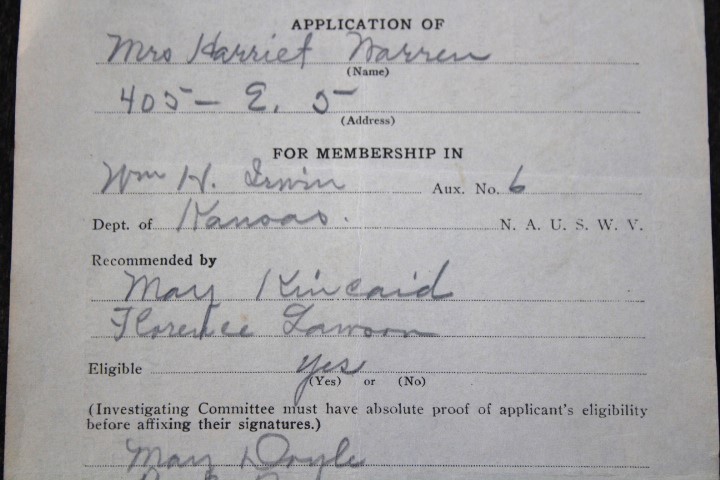 APPLICATION OF
Mrs Harriet Warren
(Name)
405 - E. 5
(Address)
FOR MEMBERSHIP IN
Wm H. Irwin Aux. No. 6
Dept. of Kansas. N. A. U. S. W. V.
Recommended by
May Kincaid
Florence Lawson
Eligible yes
(Yes) or (No)
(Investigating Committee must have absolute proof of applicant's eligibility
before affixing their signatures.)
May Doyle